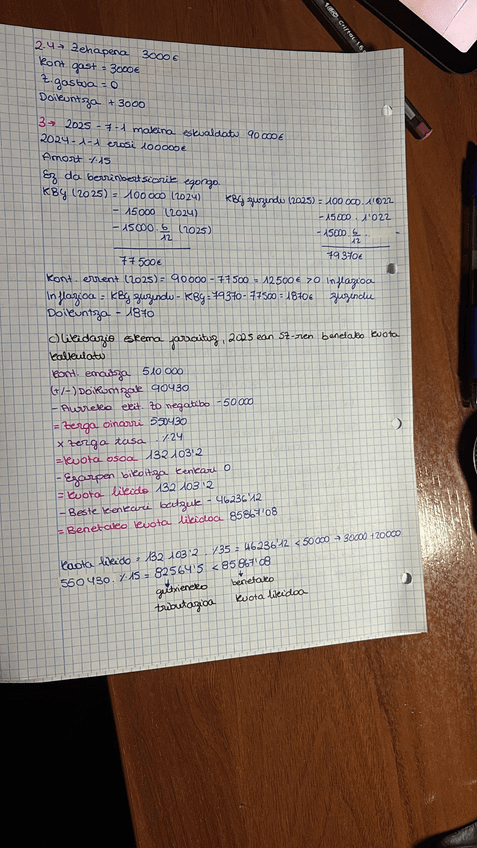 2.4→ Zehapena 3000€
Kont gast = 3000€
Z.gastua = 0
Doikuntza +3000
3→ 2025-7-1 makina eskualdatu 90000€
2024-1-1 erosi 100000€
Amort %15
Ez da berrinbertsiorik egongo.
KBG (2025) = 100000 (2024) KBG zuzendu (2025) = 100000 · 1'022
- 15000 (2024) - 15000 · 1'022
- 15000 · 6/12 (2025) - 15000 6/12 · -
77500€ 79370€
Kont. errent (2025) = 90000 - 77500 = 12500€ > 0 Inflazioa
Inflazioa = KBG zuzendu - KBG = 79370 - 77500 = 1870€ zuzendu
Doikuntza - 1870
c) likidazio eskema jarraituz, 2025 ean SZ-ren benetako kuota
kalkulatu
Kont. emaitza 510000
(+/-) Doikuntzak 90430
- Aurreko ekit. ZO negatibo - 50000
= Zerga oinarri 550430
× Zerga tasa . %24
= Kuota osoa 132103'2
- Ezarpen bikoitza kenkari 0
= Kuota likido 132103'2
- Beste kenkari batzuk - 46236'12
= Benetako kuota likidoa 85867'08
Kuota likido = 132103'2 %35 = 46236'12 < 50000 → 30000 + 20000
550430. %15 = 82564'5 < 85867'08
gutxieneko benetako
tributazioa kuota likidoa